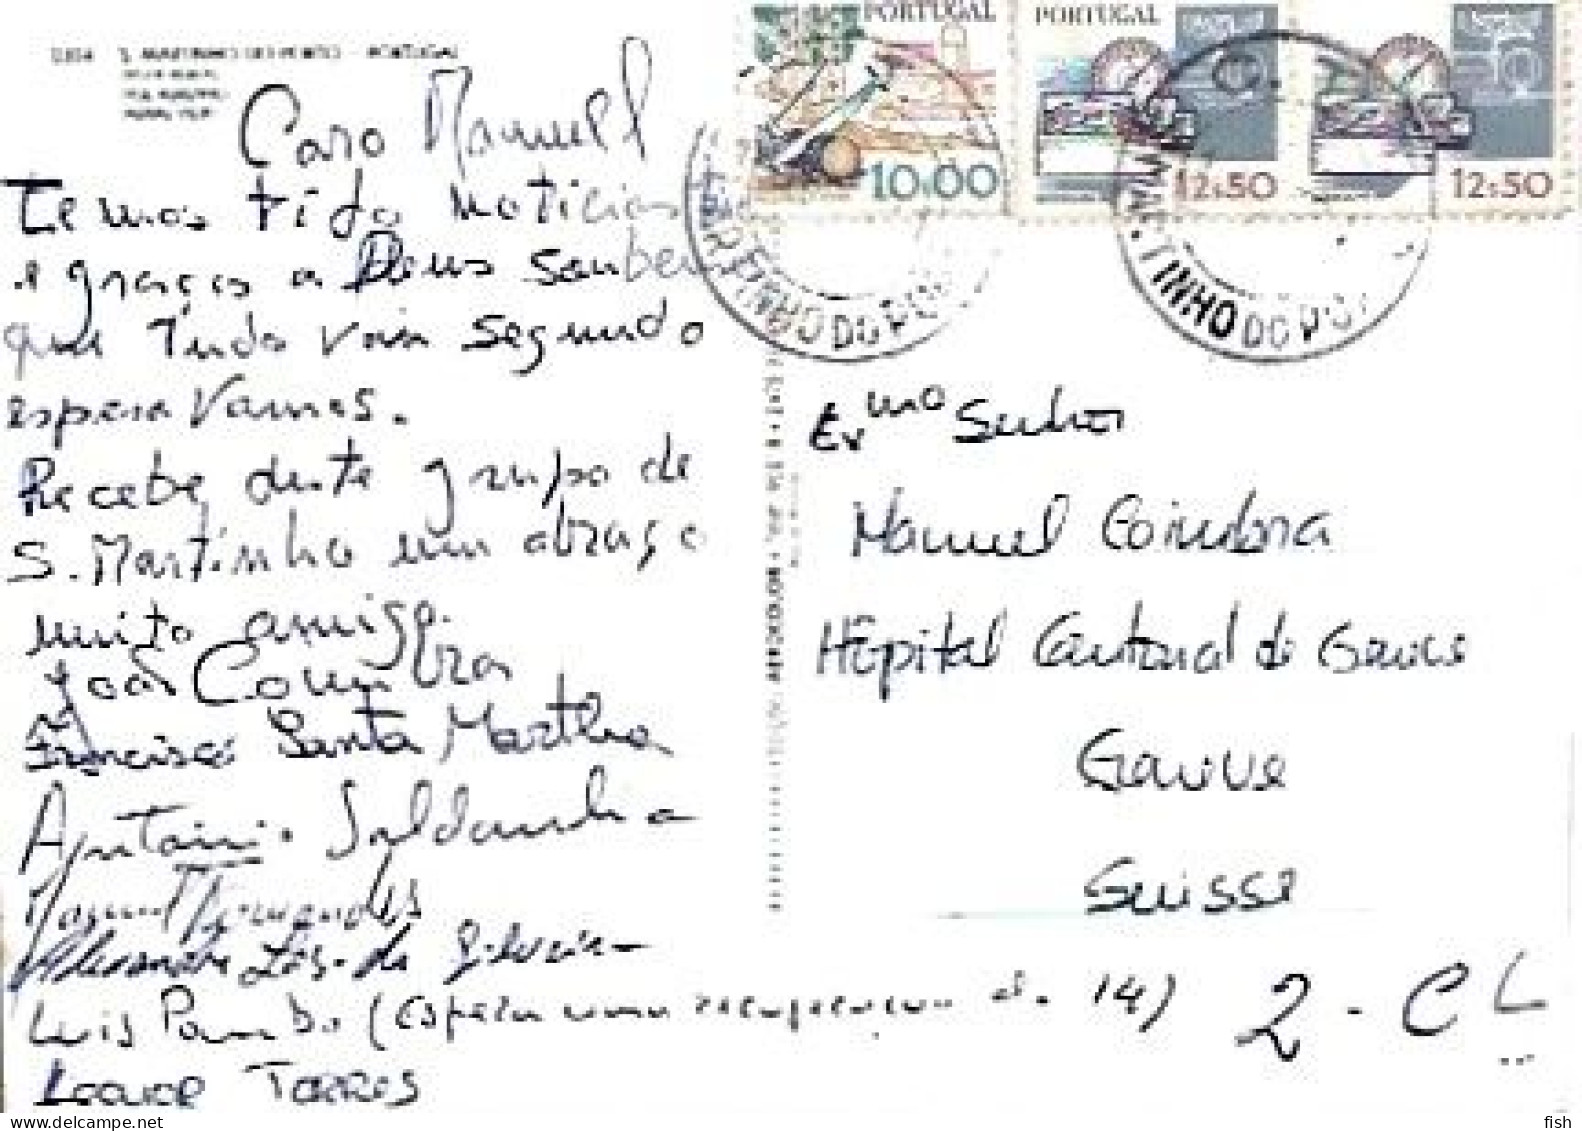 S. MARTINHO DO PORTO - PORTUGAL
PORTUGAL
10.00
PORTUGAL
12:50
12:50
Caro Manuel
Temos tido noticias
e graças a Deus soubemos
que Tudo vai segundo
esperavamos.
Recebe deste grupo de
S. Martinho um abraço
muito amigo.
João Coimbra
Francisco Santa Martha
António Saldanha
Manuel Fernandes
Luis Pombo (Espera uma
14)
Torres
Exmo Senhor
Manuel Coimbra
Hôpital Cantonal de Geneve
Geneve
Suisse
2 - CL
fish